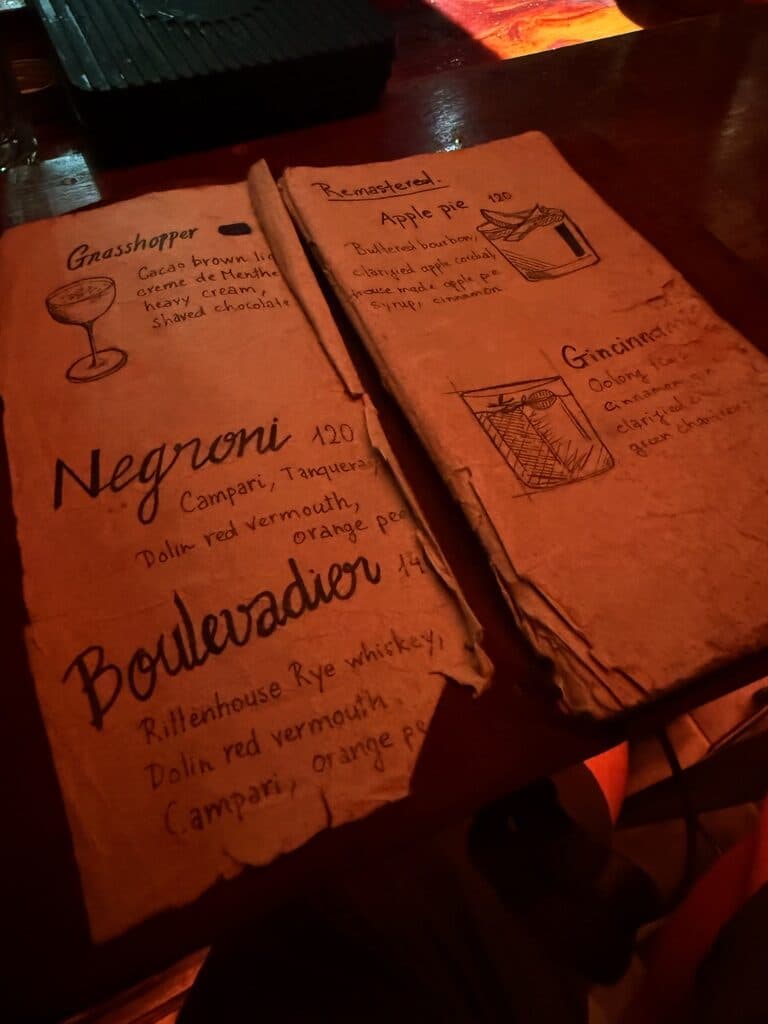 Grasshopper
Cacao brown
creme de Menthe
heavy cream,
shaved chocolate
Negroni 120
Campari, Tanqueray
Dolin red vermouth,
orange pee
Boulevadier 14
Rittenhouse Rye whiskey,
Dolin red vermouth
Campari, orange pe
Remastered.
Apple pie 120
Buttered bourbon,
clarified apple cordial,
house made apple pie
syrup, cinnamon
Gincinnam
Oolong
cinnamon
clarified
green